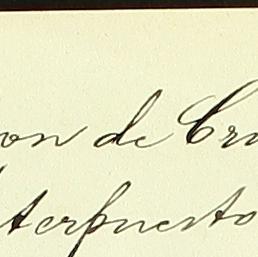 on de Cru
terpuesto